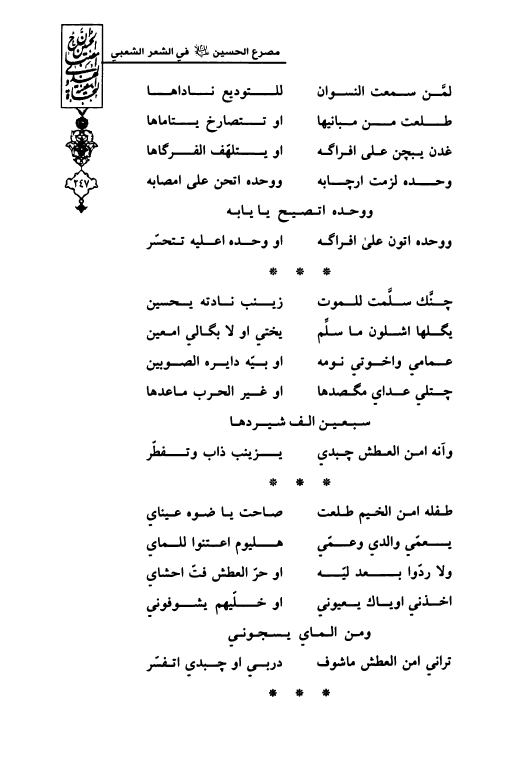 مصرع الحسين في الشعر الشعبي
٢٤٧
لمَّن سمعت النسوان للتوديع ناداها
طلعت من مبانيها او تتصارخ يتاماها
غدن يبچن على افراگه او يتلهّف الفرگاها
وحده لزمت ارچابه ووحده اتحن على امصابه
ووحده اتصيح يا يابه
ووحده اتون على افراگه او وحده اعليه تتحسّر
* * *
چنَّك سلَّمت للموت زينب نادته يحسين
يگلها اشلون ما سلِّم يختي او لا بگالي امعين
عمامي واخوتي نومه او بيّه دايره الصوبين
چتلي عداي مگصدها او غير الحرب ماعدها
سبعين الف شيردها
وآنه امن العطش چبدي يزينب ذاب وتفطّر
* * *
طفله امن الخيم طلعت صاحت يا ضوه عيناي
يعمّي والدي وعمّي هليوم اعتنوا للماي
ولا ردّوا بعد ليّه او حرّ العطش فتّ احشاي
اخذني اوياك يعيوني او خلّيهم يشوفوني
ومن الماي يسجوني
تراني امن العطش ماشوف دربي او چبدي اتفسّر
* * *